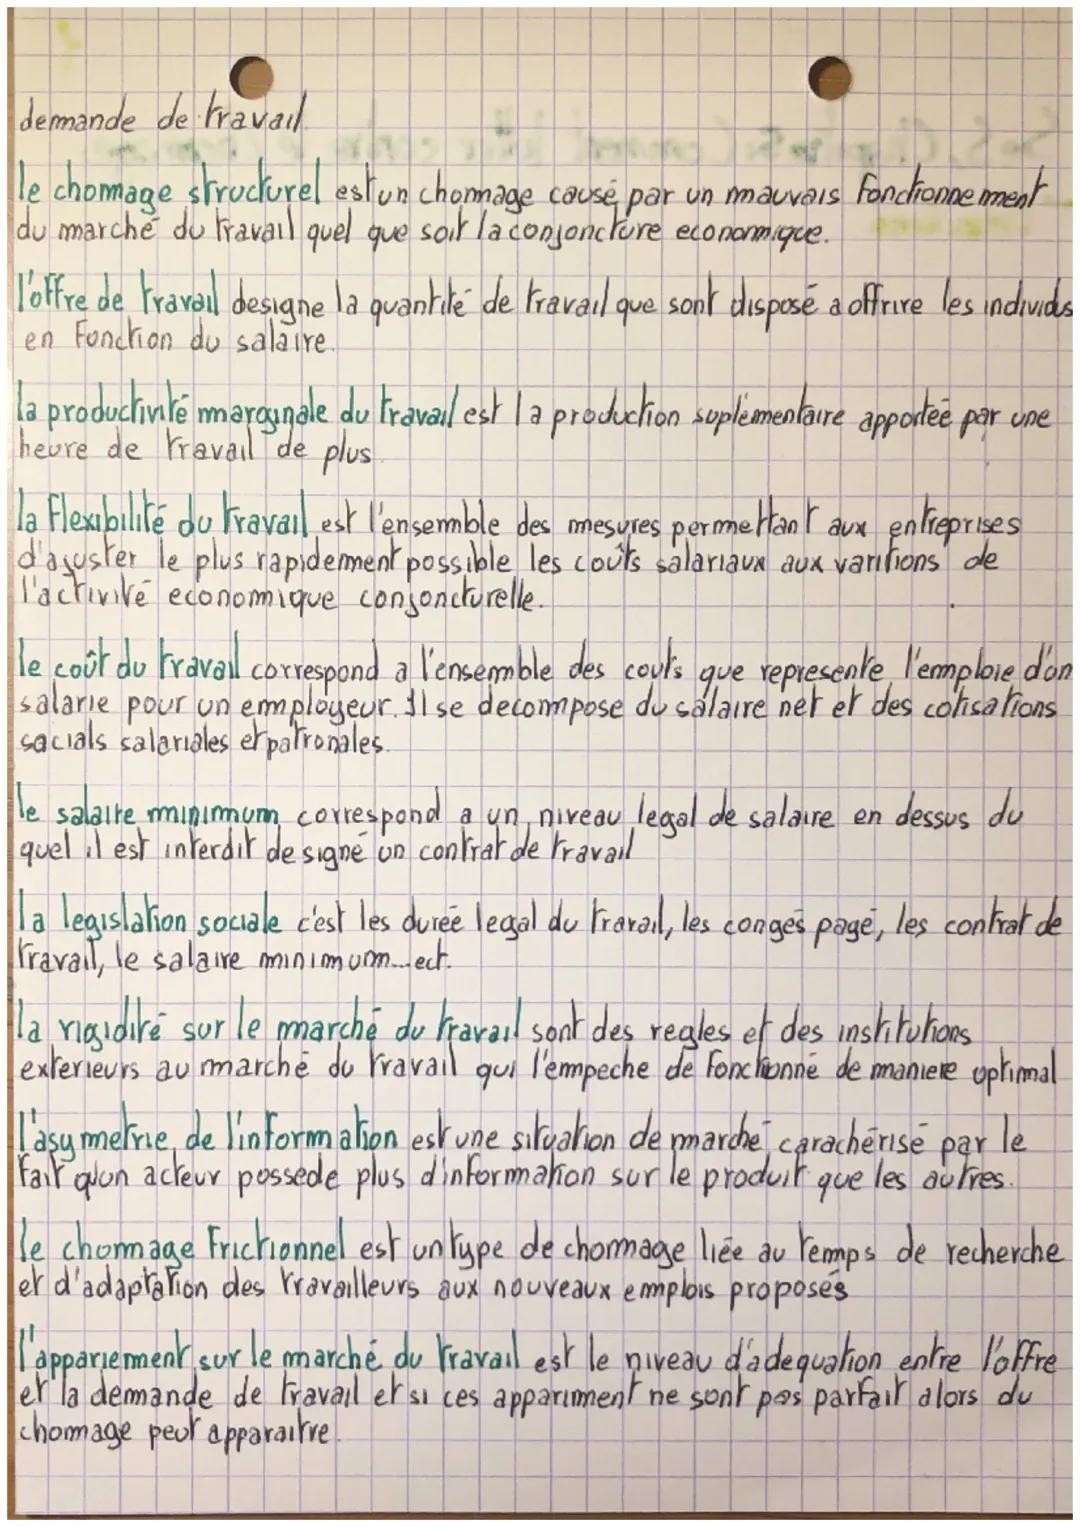 demande de travail.
le chomage structurel est un chomage causé par un mauvais fonctionnement
du marché du travail quel que soit la conjoncture economique.
l'offre de travail designe la quantité de travail que sont disposé a offrire les individus
en fonction du salaire.
la productivité marginale du travail est la production suplémentaire apporteé par une
heure de travail de plus
la flexibilité du travail est l'ensemble des mesures permettant aux entreprises
d'ajuster le plus rapidement possible les coûts salariaux aux varitions de
l'activité economique conjoncturelle.
le coût du travail correspond a l'ensemble des couts que represente l'emploie d'un
salarie pour un employeur. Il se decompose du salaire net et des cotisations
socials salariales et patronales.
le salaire minimum correspond a un niveau legal de salaire en dessus du
quel il est interdit de signé un contrat de travail
la legislation sociale c'est les durée legal du travail, les congés payé, les contrat de
travail, le salaire minimum...ect.
la rigidité sur le marché du travail sont des regles et des institutions
exterieurs au marché du travail qui l'empeche de fonctionné de maniere optimal
l'asymetrie de l'information est une situation de marché carachérisé par le
fait qu'un acteur possede plus d'information sur le produit que les autres.
le chomage frictionnel est un type de chomage liée au temps de recherche
et d'adaptation des travailleurs aux nouveaux emplois proposés
l'appariement sur le marché du travail est le niveau d'adequation entre l'offre
et la demande de travail et si ces appariment ne sont pas parfait alors du
chomage peut apparaitre.